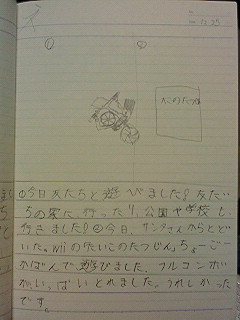 12 25
① ②
①今日友だちと遊べました!友だ
ちの家に、行ったり、公園や学校も
行きました!②今日、サンタさんからとど
いた、Wiiのたいこのたつじん、ちょーごー
かばんで遊びました、フルコンボ
がいっぱいとれました。うれしかった
です。